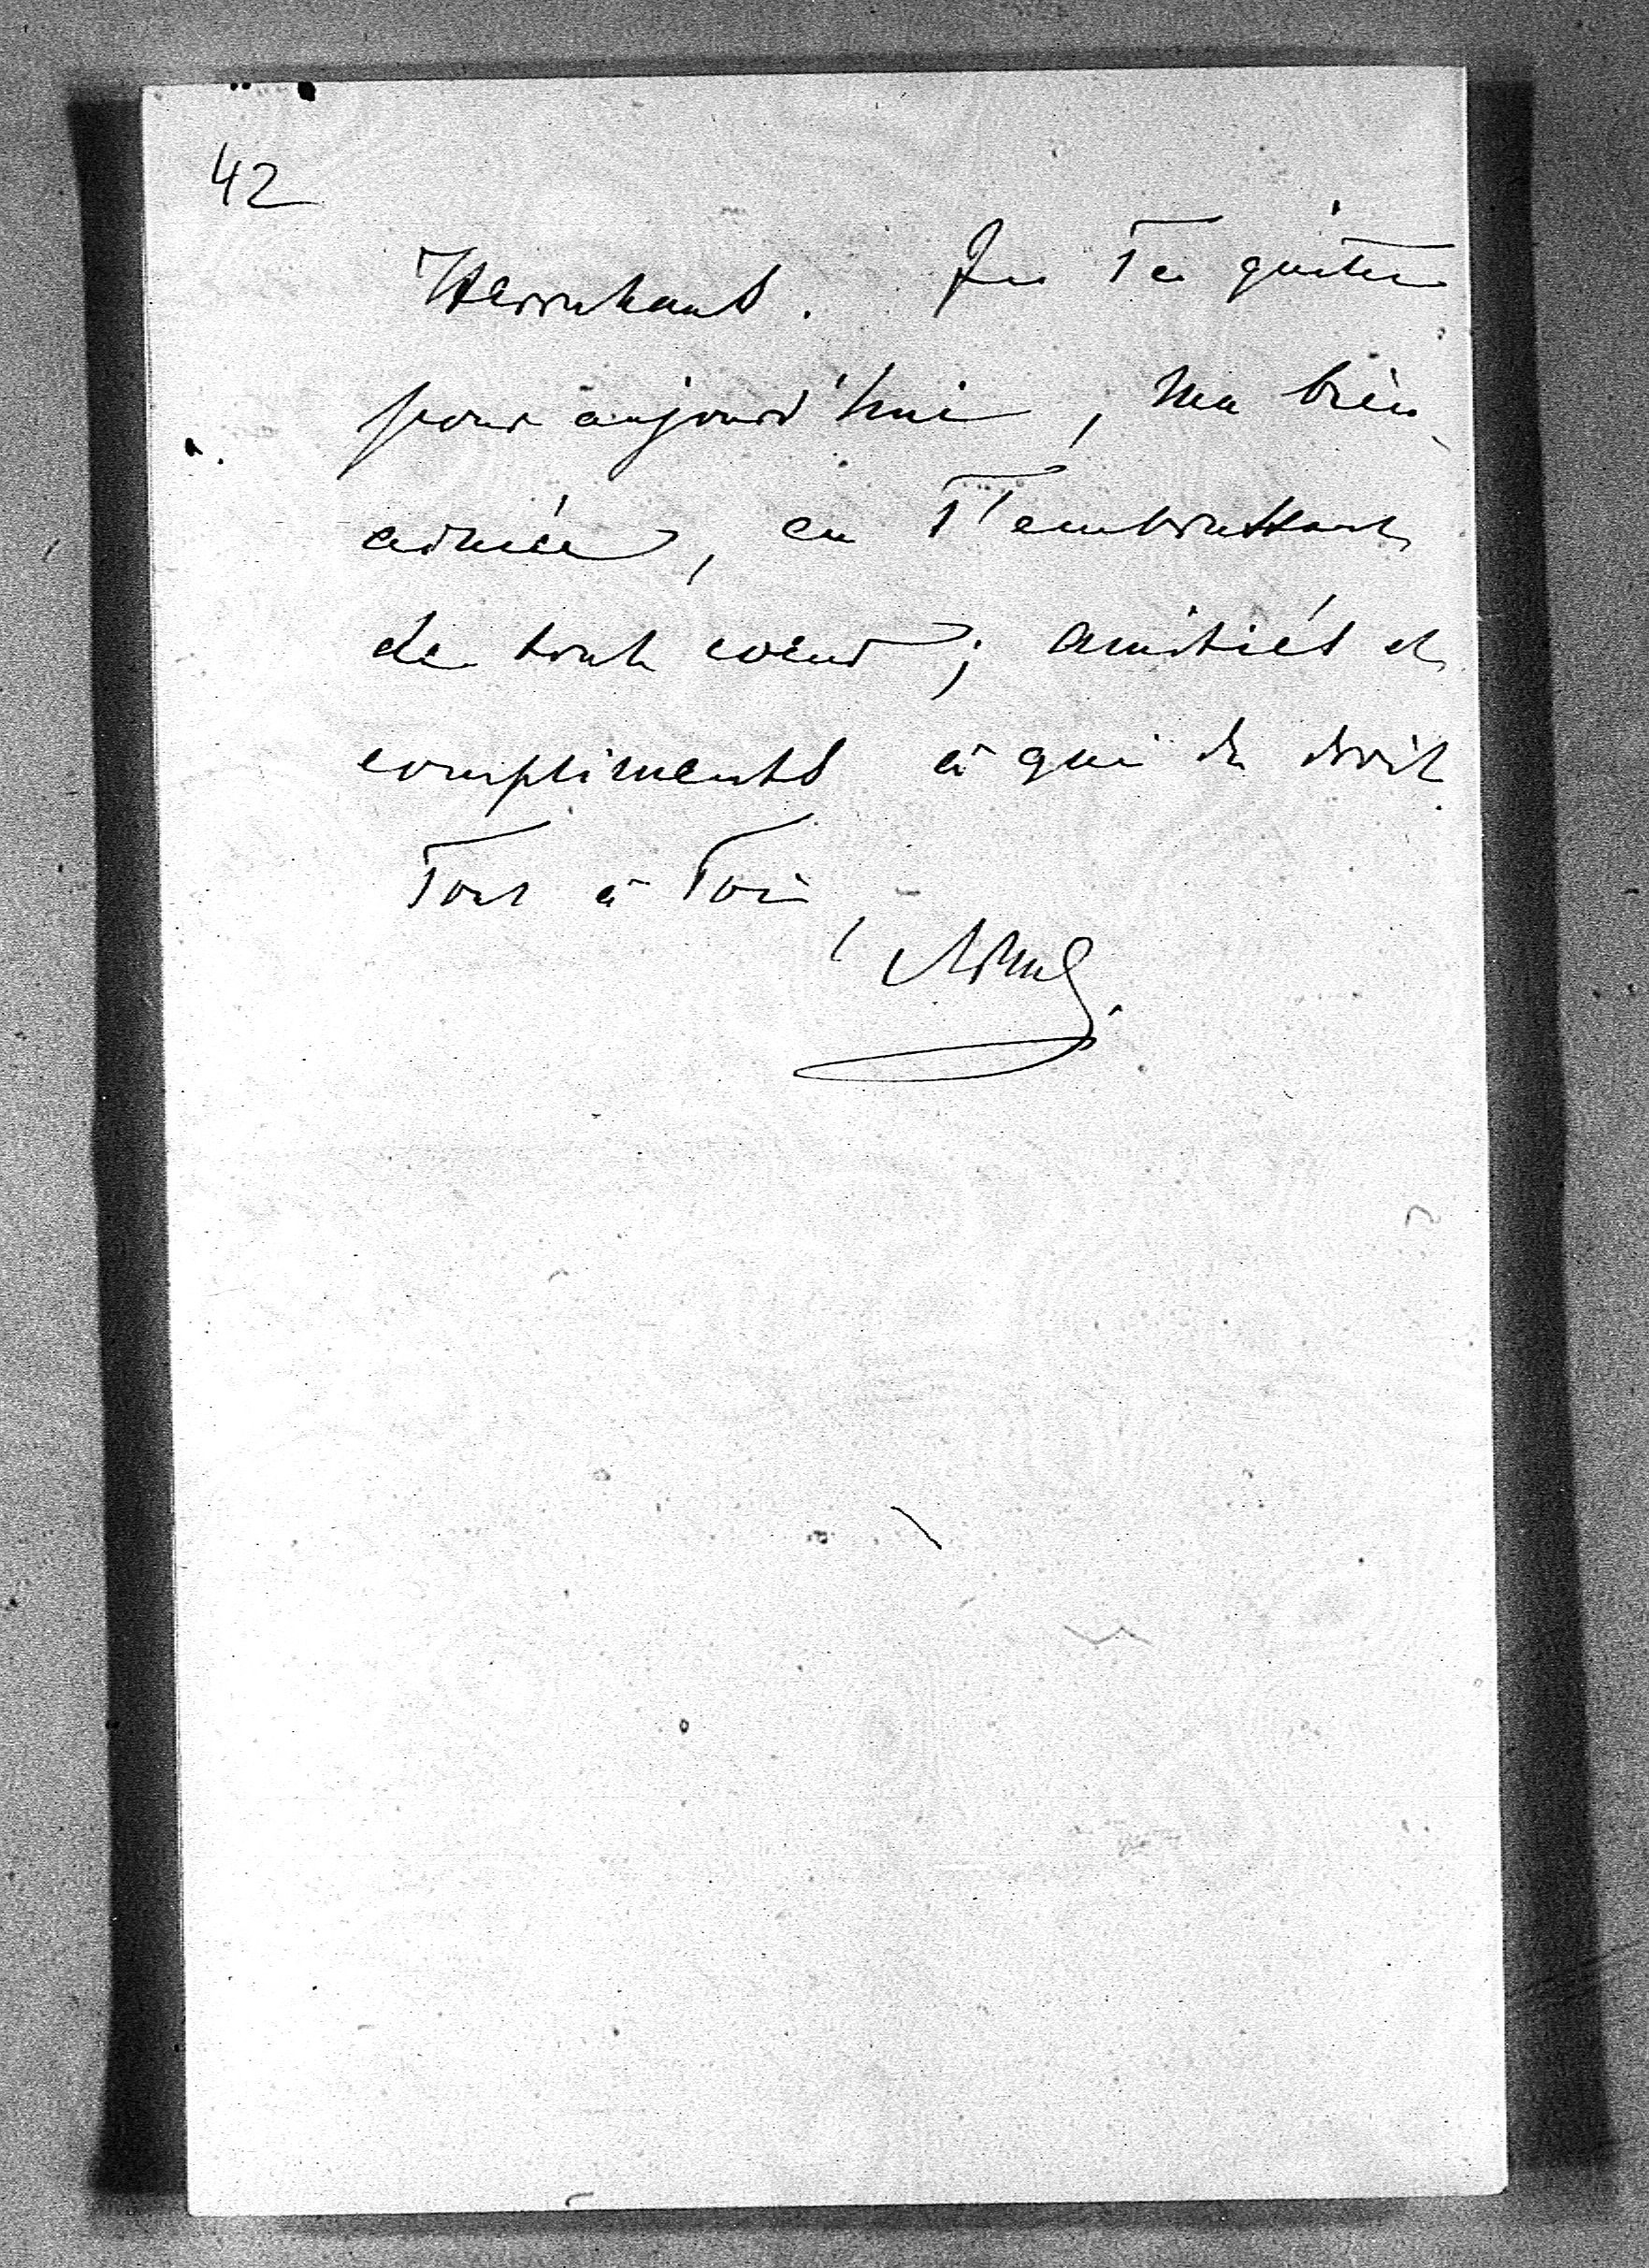 42
Je Te quitte
pour aujourd'hui, ma bien
aimée, en T'embrassant
de tout coeur; amitiés et
compliments à qui de droit.
Tout à Toi,